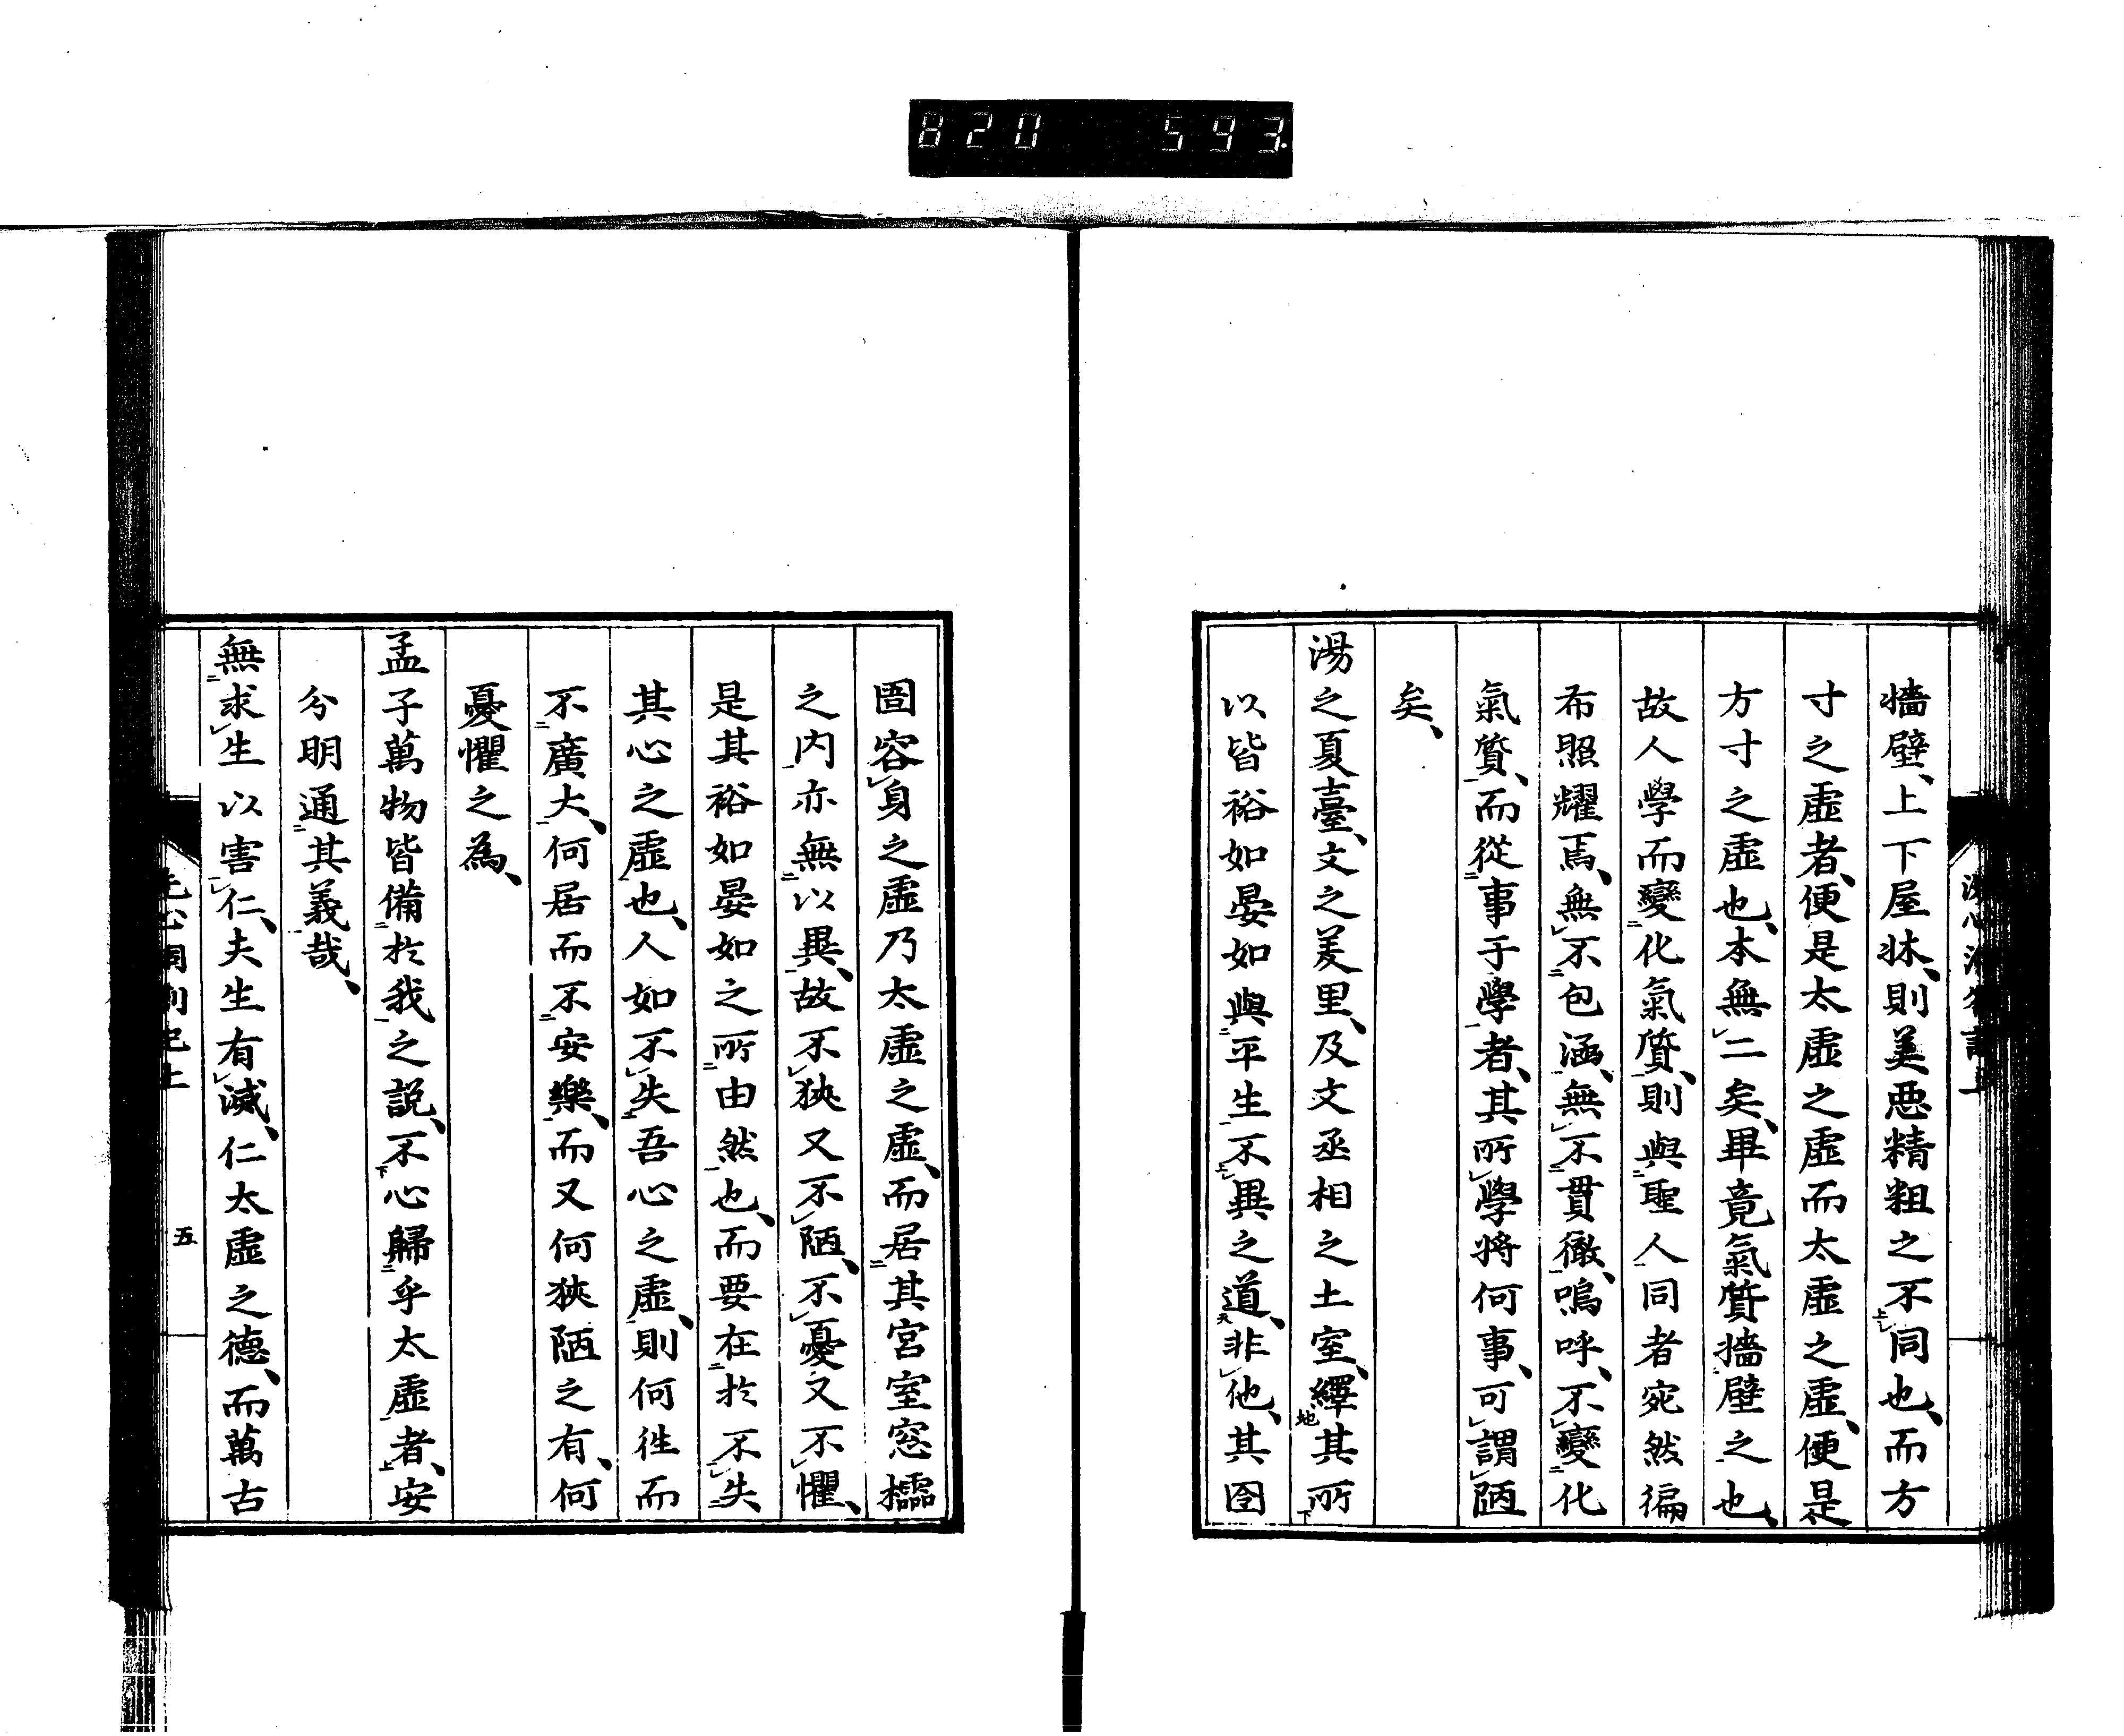 820 593
牆壁、上下屋牀、則美惡精粗之不同也、而方
寸之虛者、便是太虛之虛而太虛之虛、便是
方寸之虛也、本無二矣、畢竟氣質牆壁之也、
故人學而變化氣質、則與聖人同者宛然徧
布照耀焉、無不包涵、無不貫徹、嗚呼、不變化
氣質、而從事于學者、其所學將何事、可謂陋
矣、
湯之夏臺、文之羑里、及文丞相之土室、繹其所
以皆裕如晏如與平生不異之道、非他、其囹
圄容身之虛乃太虛之虛、而居其宮室窓櫺
之内亦無以異、故不狹又不陋、不憂又不懼、
是其裕如晏如之所由然也、而要在於不失
其心之虛也、人如不失吾心之虛、則何往而
不廣大、何居而不安樂、而又何狹陋之有、何
憂懼之為、
孟子萬物皆備於我之説、不心歸乎太虛者、安
分明通其義哉、
無求生以害仁、夫生有滅、仁太虛之德、而萬古
五